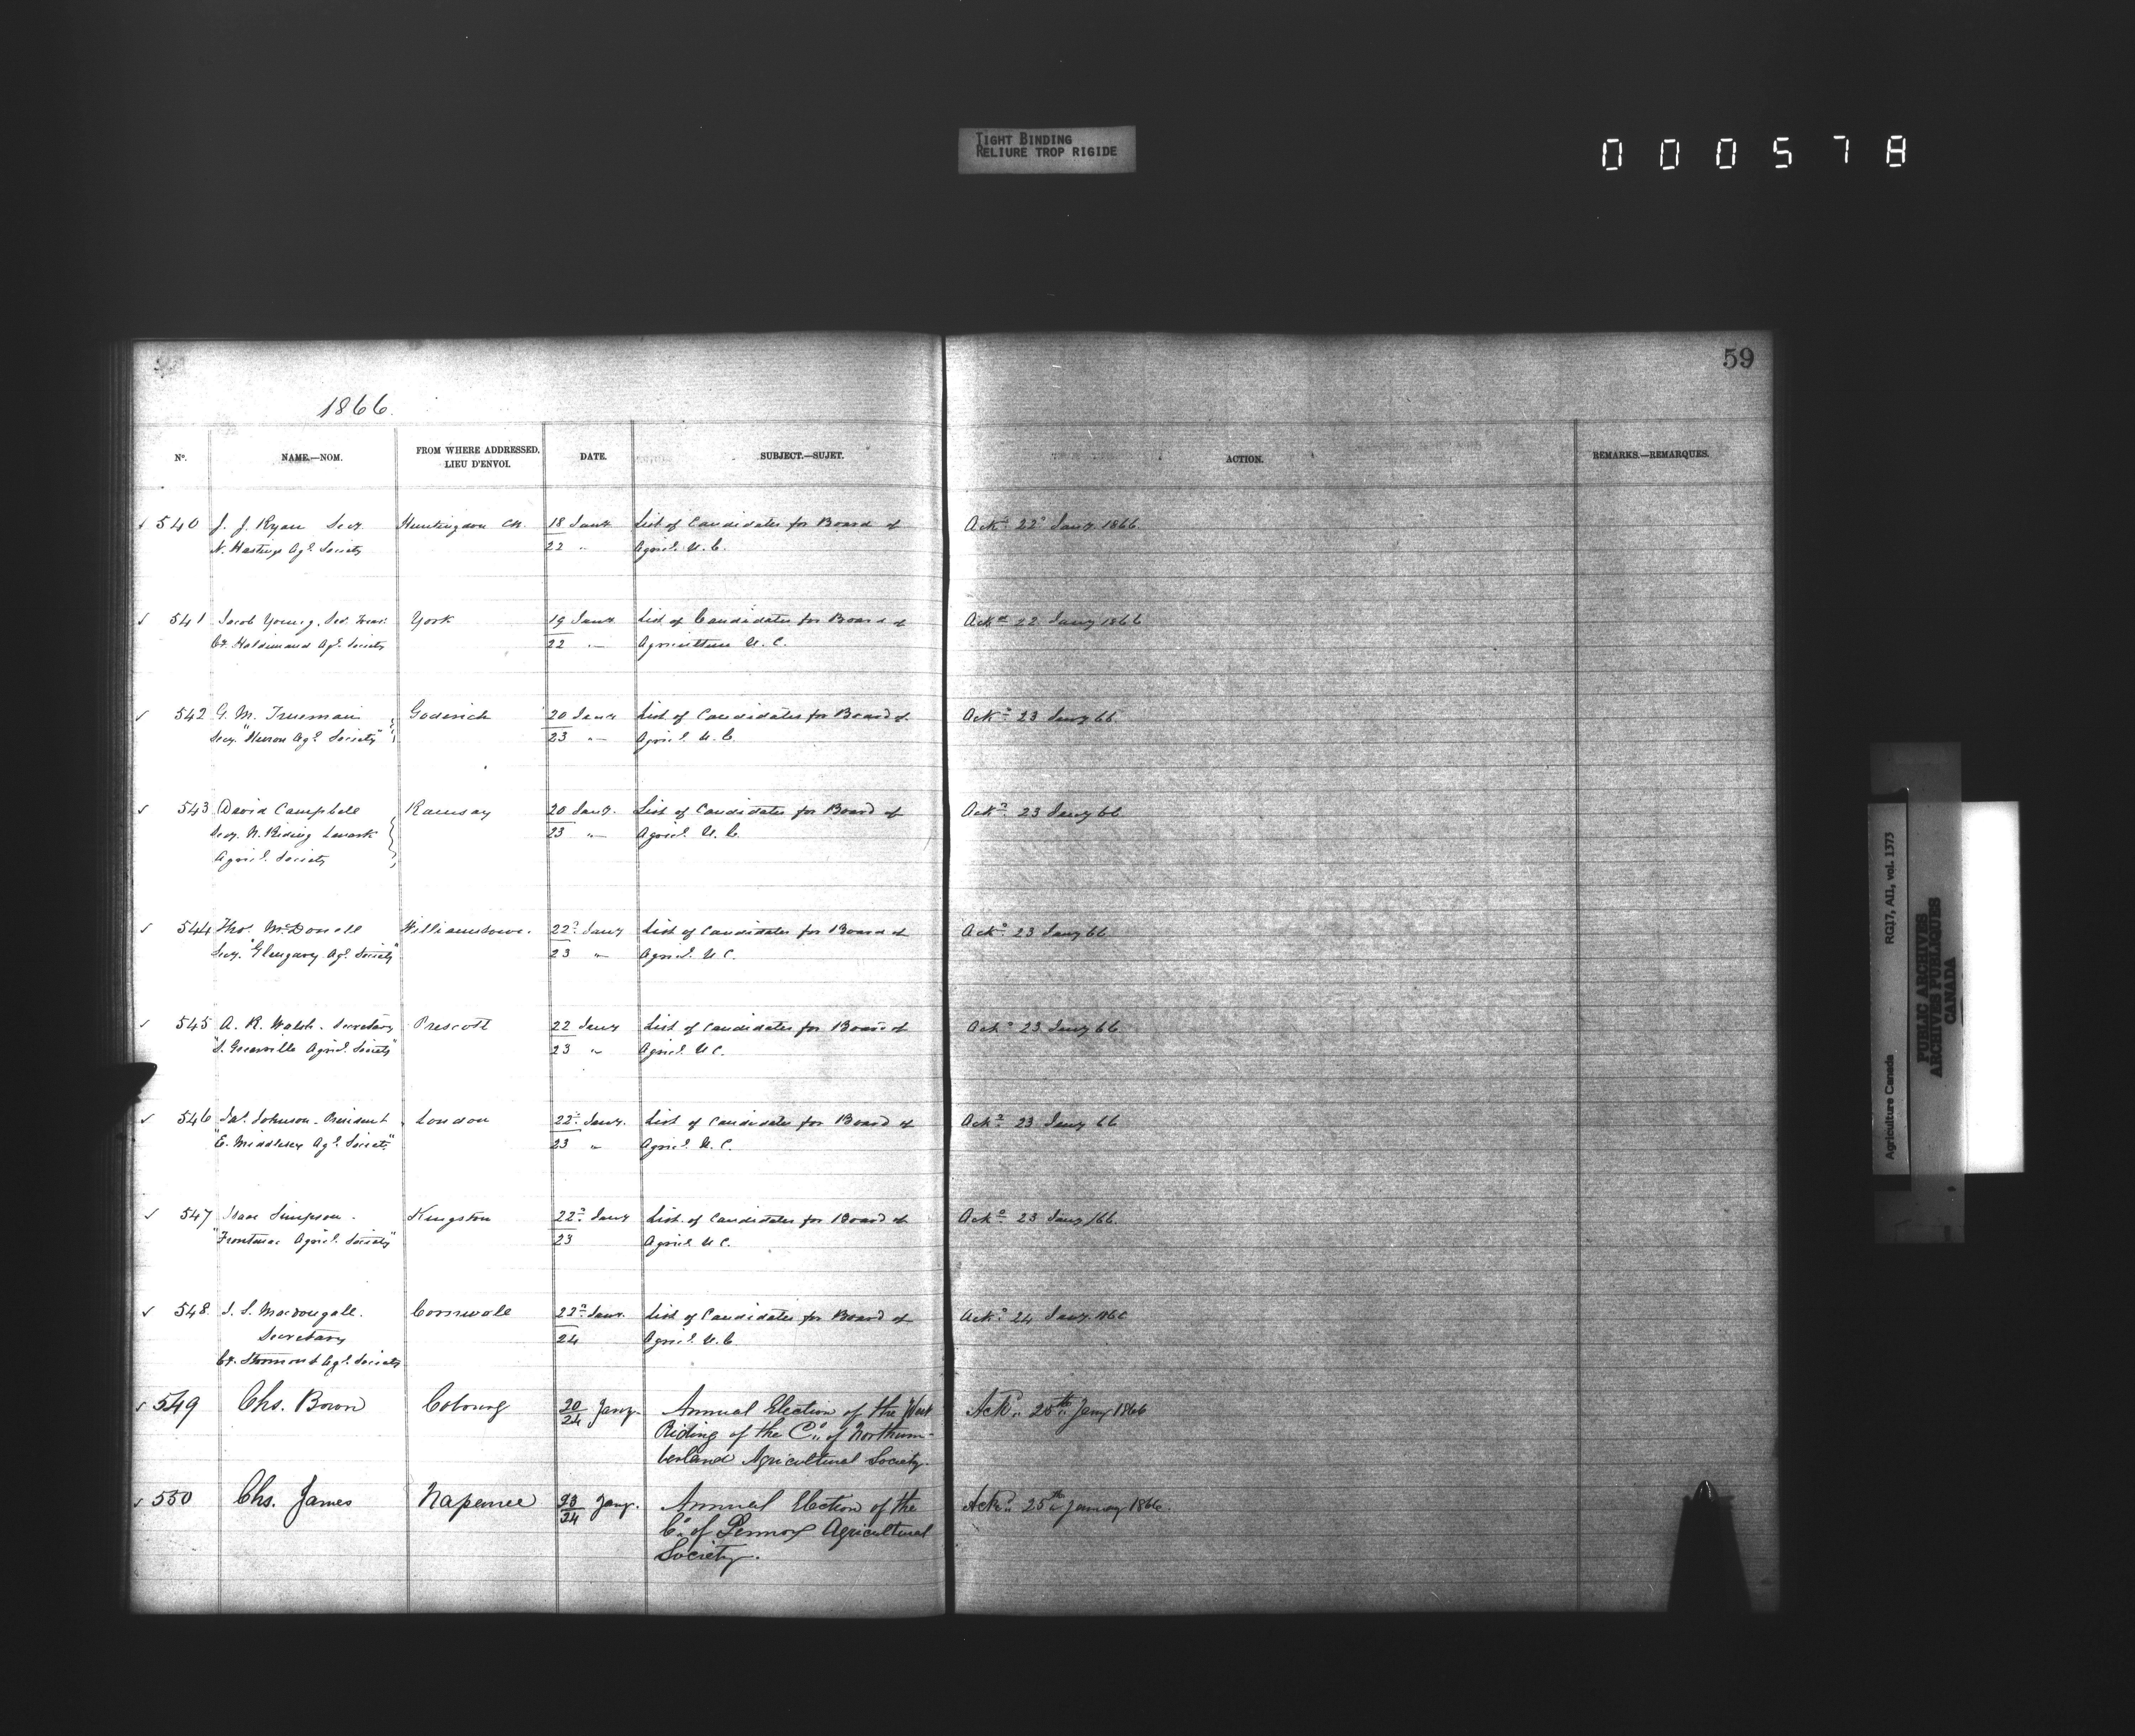 TIGHT BINDING
RELIURE TROP RIGIDE
000578
59
1866.
No. NAME.—NOM. FROM WHERE ADDRESSED. LIEU D'ENVOI. DATE. SUBJECT.—SUJET. ACTION. REMARKS.—REMARQUES.
540 J. J. Ryan Secy. Huntingdon 18 Jany List of Candidates for Board of Ackd 22d Jany 1866
N. Hastings Agl. Society 22 " Agricl. U.C.
541 Jacob Young, Sec. Treas. York 19 Jany List of Candidates for Board of Ackd 22 Jany 1866
Co. Haldimand Agl. Society 22 " Agriculture U.C.
542 G. M. Trueman Goderich 20 Jany List of Candidates for Board of Ackd 23 Jany 66
Secy. "Huron Agl. Society" 23 " Agricl. U.C.
543 David Campbell Ramsay 20 Jany. List of Candidates for Board of Ackd 23 Jany 66
Secy. N. Riding Lanark 23 " Agricl. U.C.
Agricl. Society
544 Thos. McDonell Williamstown. 22d Jany List of Candidates for Board of Ackd 23 Jany 66
Secy. "Glengary Agl. Society" 23 " Agricl. U.C.
545 A. R. Walsh. Secretary Prescott 22 Jany List of Candidates for Board of Ackd 23 Jany 66
"S. Grenville Agricl. Society" 23 " Agricl. U.C.
546 Jas. Johnson. President London 22d Jany. List of Candidates for Board of Ackd 23 Jany 66
"E. Middlesex Agl. Society" 23 " Agricl. U.C.
547 Isaac Simpson. Kingston 22d Jany List of Candidates for Board of Ackd 23 Jany /66.
"Frontenac Agricl. Society" 23 Agricl. U.C.
548 Macdougall. Cornwall 22d Jany. List of Candidates for Board of Ackd 24 Jany
Secretary 24 Agricl. U.C.
Co. Stormont Agl. Society
549 Chs. Bown Cobourg 20/24 Jany. Annual Election of the West Ackd. 25th Jany 1866
Riding of the Co. of Northum-
berland Agricultural Society.
550 Chs. James Napanee 23/24 Jany. Annual Election of the Ackd. 25th January 1866.
Co. of Lennox Agricultural
Society.
Agriculture Canada RG17, AI1, vol. 1373
PUBLIC ARCHIVES
ARCHIVES PUBLIQUES
CANADA